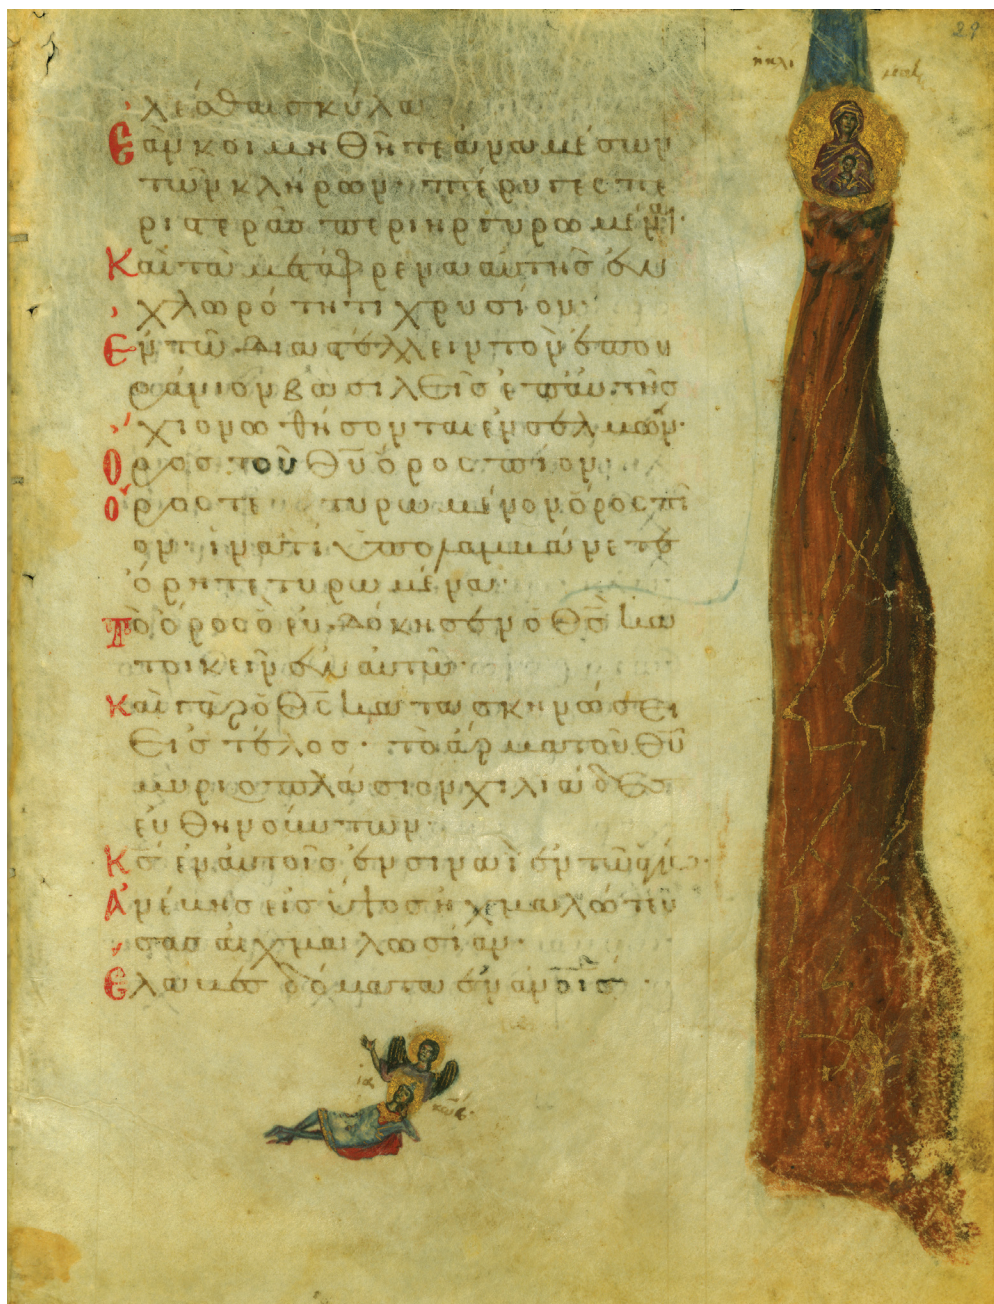 29
λέσθαι σκύλα
Ἐὰν κοιμηθῆτε ἀναμέσον
τῶν κλήρων· πτέρυγες πε
ριστερᾶς περιηργυρωμέναι·
Καὶ τὰ μετάφρενα αὐτῆς ἐν
χλωρότητι χρυσίου·
Ἐν τῷ διαστέλλειν τὸν ἐπου
ράνιον βασιλεῖς ἐπ' αὐτῆς
χιονωθήσονται ἐν σελμών·
Ὄρος τοῦ Θῦ ὄρος πῖον
Ὄρος τετυρωμένον ὄρος πῖ
ον· ἱνατί ὑπολαμβάνετε
ὄρη τετυρωμένα·
Τὸ ὄρος ὃ εὐδόκησεν ὁ Θς κα
τοικεῖν ἐν αὐτῷ·
Καὶ γὰρ ὁ Θς κατασκηνώσει
εἰς τέλος· τὸ ἅρμα τοῦ Θῦ
μυριοπλάσιον χιλιάδες
εὐθηνούντων·
Κς ἐν αὐτοῖς ἐν σινᾶ ἐν τῷ ἁγίῳ·
Ἀνέβης εἰς ὕψος ᾐχμαλώτευ
σας αἰχμαλωσίαν·
Ἔλαβες δόματα ἐν ἀνοις·
ια κωβ